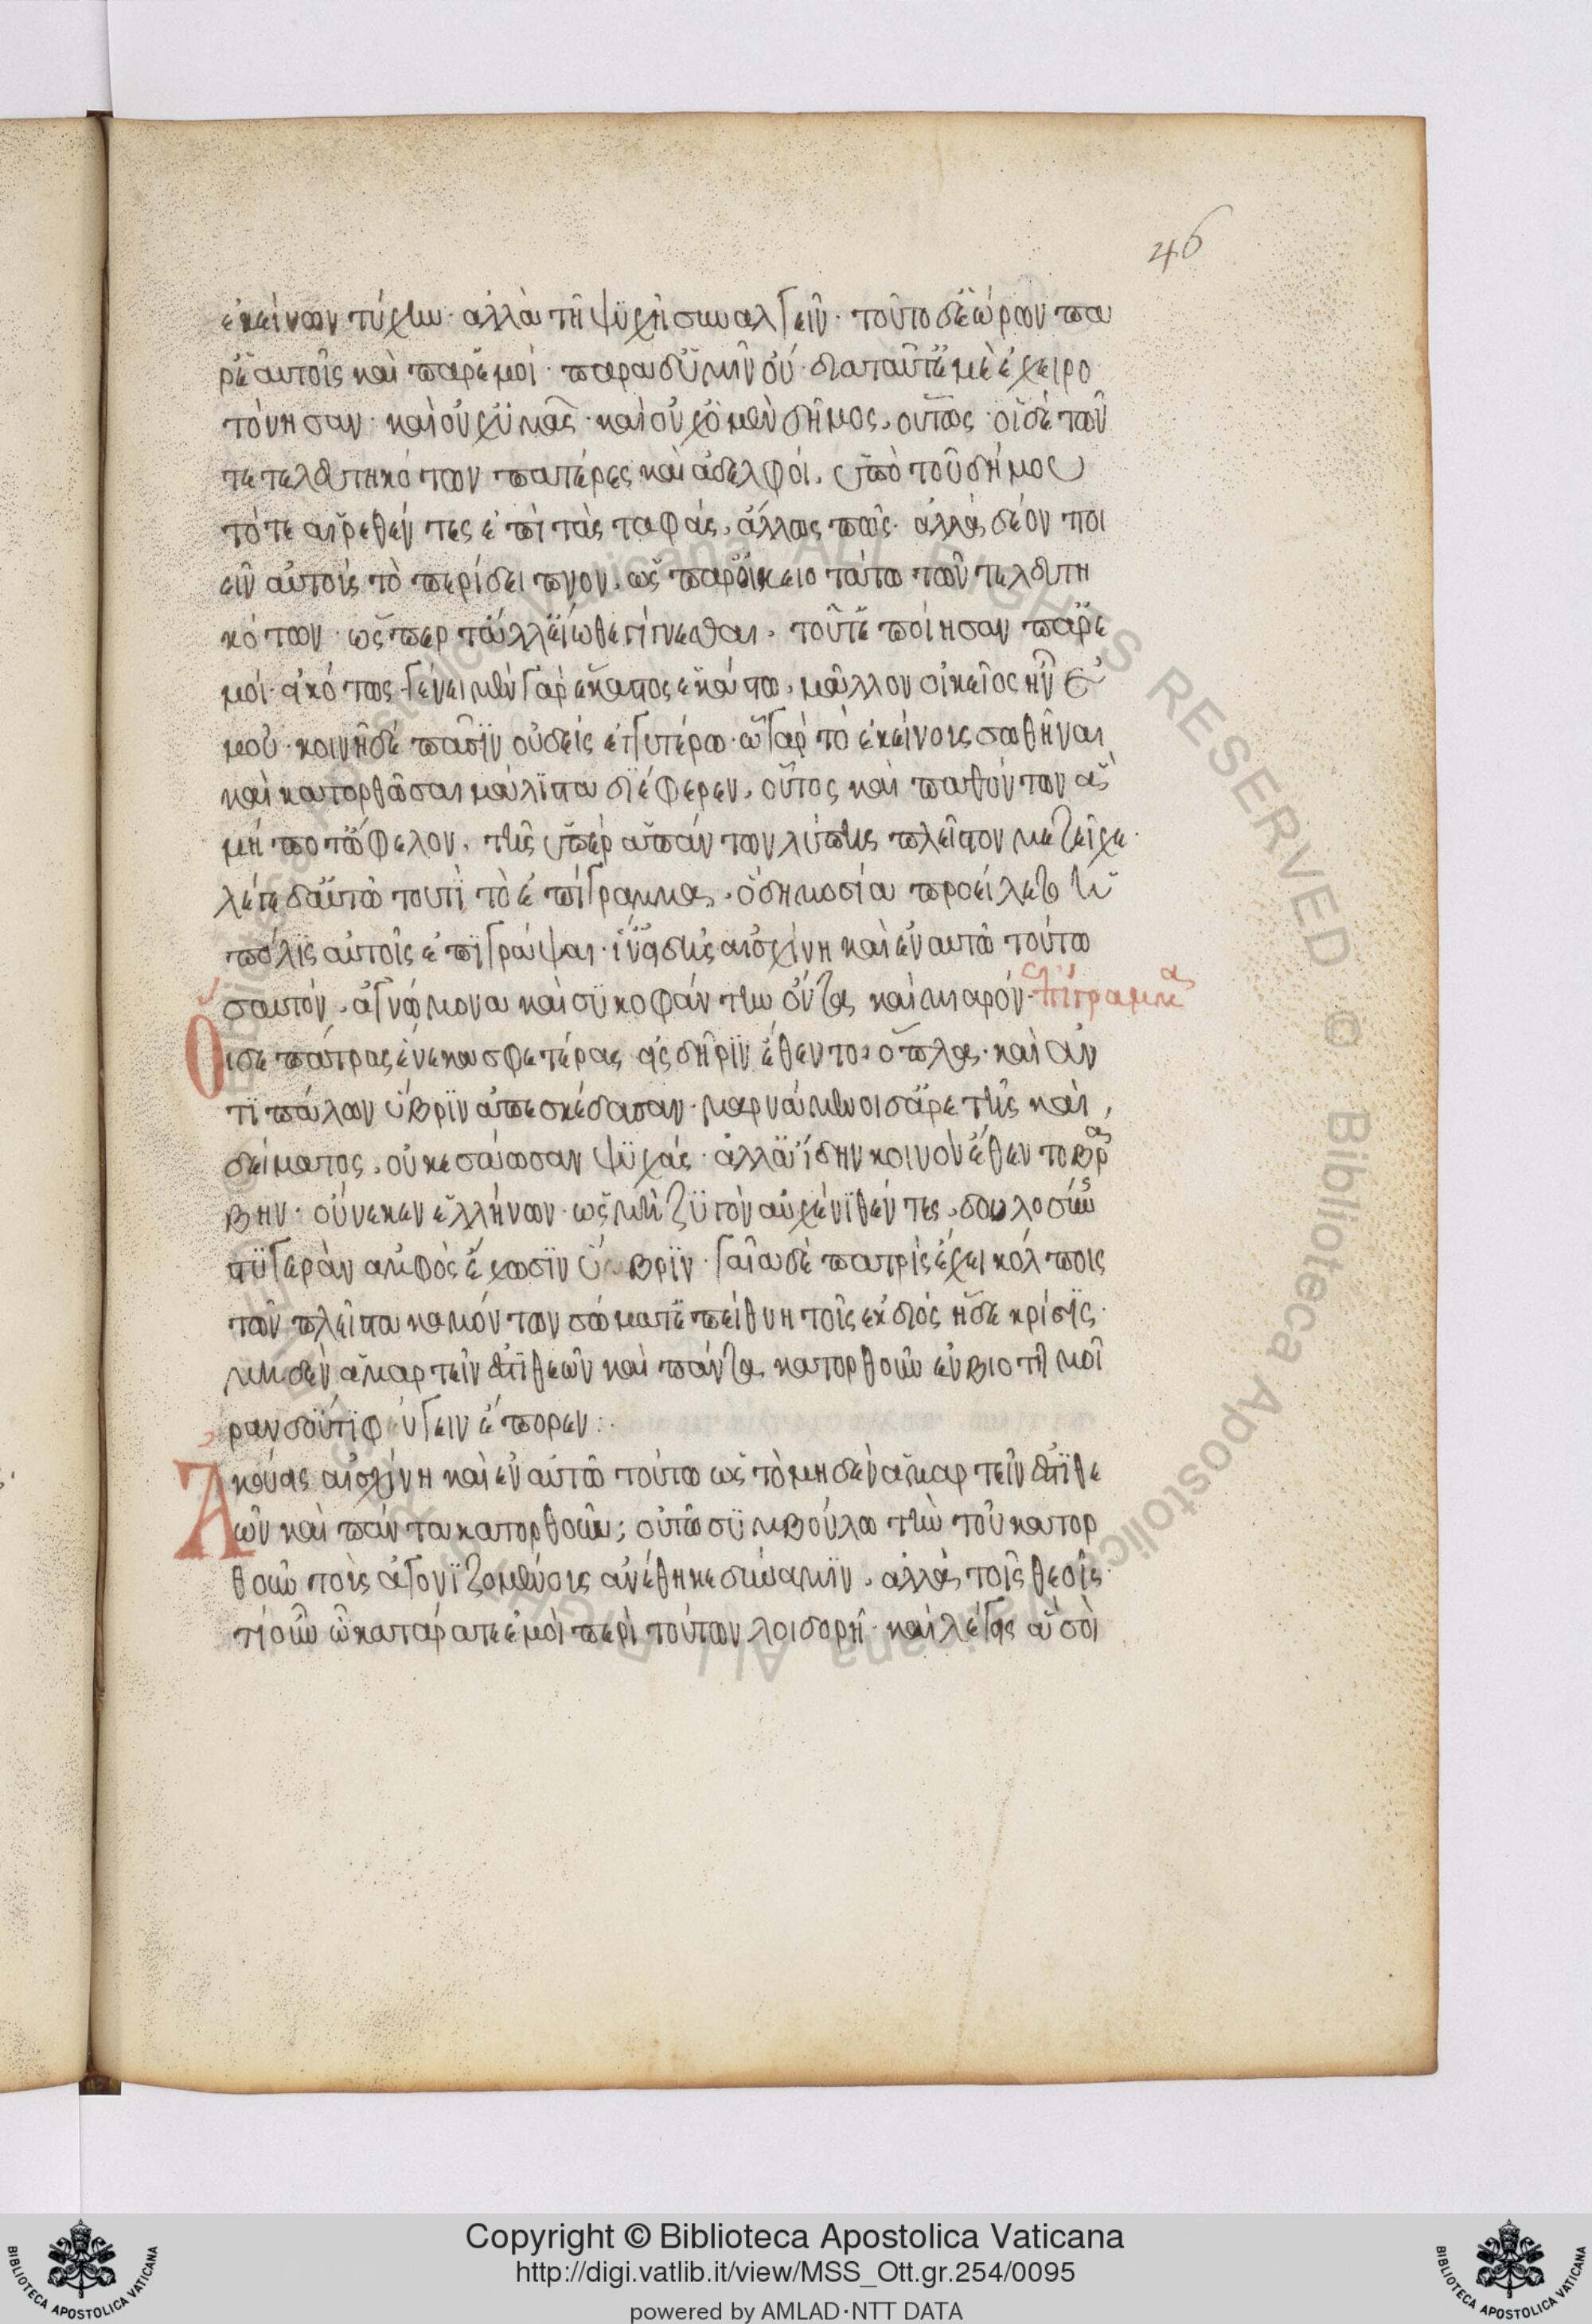 46
ἐκείνων τύχην· ἀλλὰ τῆ ψυχῆ συναλγεῖν· τοῦτο δ' ἑώρων πα
ρ' ἑαυτοῖς καὶ παρ' ἐμοί· παρὰ δ' ὑμῖν οὔ· διὰ ταῦτ' ἐμὲ ἐχειρο
τόνησαν· καὶ οὐχ ὑμᾶς· καὶ οὐχ ὁ μὲν δῆμος, οὕτως· οἱ δὲ τῶν
τετελευτηκότων πατέρες καὶ ἀδελφοί, ὑπὸ τοῦ δήμου
τότε αἱρεθέντες ἐπὶ τὰς ταφάς, ἄλλως πως· ἀλλὰ δέον ποι
εῖν αὐτοὺς τὸ περίδειπνον, ὡς παρ' οἰκειοτάτω τῶν τελευτη
κότων· ὥσπερ τἄλλ' εἴωθε γίγνεσθαι, τοῦτ' ἐποίησαν παρ' ἐ
μοί· εἰκότως· γένει μὲν γὰρ ἕκαστος ἑκάστω, μᾶλλον οἰκεῖος ἦν ἐ
μοῦ· κοινῆ δὲ πᾶσιν οὐδεὶς ἐγγυτέρω· ὧ γὰρ τὸ ἐκείνους σωθῆναι
καὶ κατορθῶσαι μάλιστα διέφερεν, οὗτος καὶ παθόντων ἃ
μή ποτ' ὤφελον, τῆς ὑπὲρ ἁπάντων λύπης πλεῖστον μετεῖχε·
λέγε δ' αὐτῶ τουτὶ τὸ ἐπίγραμμα, ὃ δημοσία προείλετο ἡ
πόλις αὐτοῖς ἐπιγράψαι· ἵν' εἰδῆς αἰσχίνη καὶ ἐν αὐτῶ τούτω
σαυτόν, ἀγνώμονα καὶ συκοφάντην ὄντα καὶ μιαρόν· ἐπίγραμμα
Οἵδε πάτρας ἕνεκα σφετέρας εἰς δῆριν ἔθεντο, ὅπλα· καὶ ἀν
τιπάλων ὕβριν ἀπεσκέδασαν· μαρνάμενοι δ' ἀρετῆς καὶ
δείματος, οὐκ ἐσάωσαν ψυχάς· ἀλλ' ἀΐδην κοινὸν ἔθεντο βρα
βῆν· οὕνεκεν ἑλλήνων· ὡς μὴ ζυγὸν αὐχένι θέντες, δουλοσύν
στυγερὰν ἀμφὶς ἔχωσιν ὕβριν· γαῖα δὲ πατρὶς ἔχει κόλποις
τῶν πλεῖστα καμόντων σώματ' ἐπεὶ θνητοῖς ἐκ διὸς ἥδε κρίσις·
μηδὲν ἁμαρτεῖν ἐστι θεῶν καὶ πάντα κατορθοῦν ἐν βιοτῆ μοῖ
ραν δ' οὔτι φυγεῖν ἔπορεν:·
Ἀκούεις αἰσχίνη καὶ ἐν αὐτῶ τούτω ὡς τὸ μηδὲν ἁμαρτεῖν ἐστι θε
ῶν καὶ πάντα κατορθοῦν; οὐ τῶ συμβούλω τὴν τοῦ κατορ
θοῦν τοὺς ἀγονιζομένους ἀνέθηκε δύναμιν, ἀλλὰ τοῖς θεοῖς·
τί οὖν ὦ κατάρατε ἐμοὶ περὶ τούτων λοιδορῆ· καὶ λέγεις ἃ σοὶ
Copyright © Biblioteca Apostolica Vaticana
http://digi.vatlib.it/view/MSS_Ott.gr.254/0095
powered by AMLAD·NTT DATA